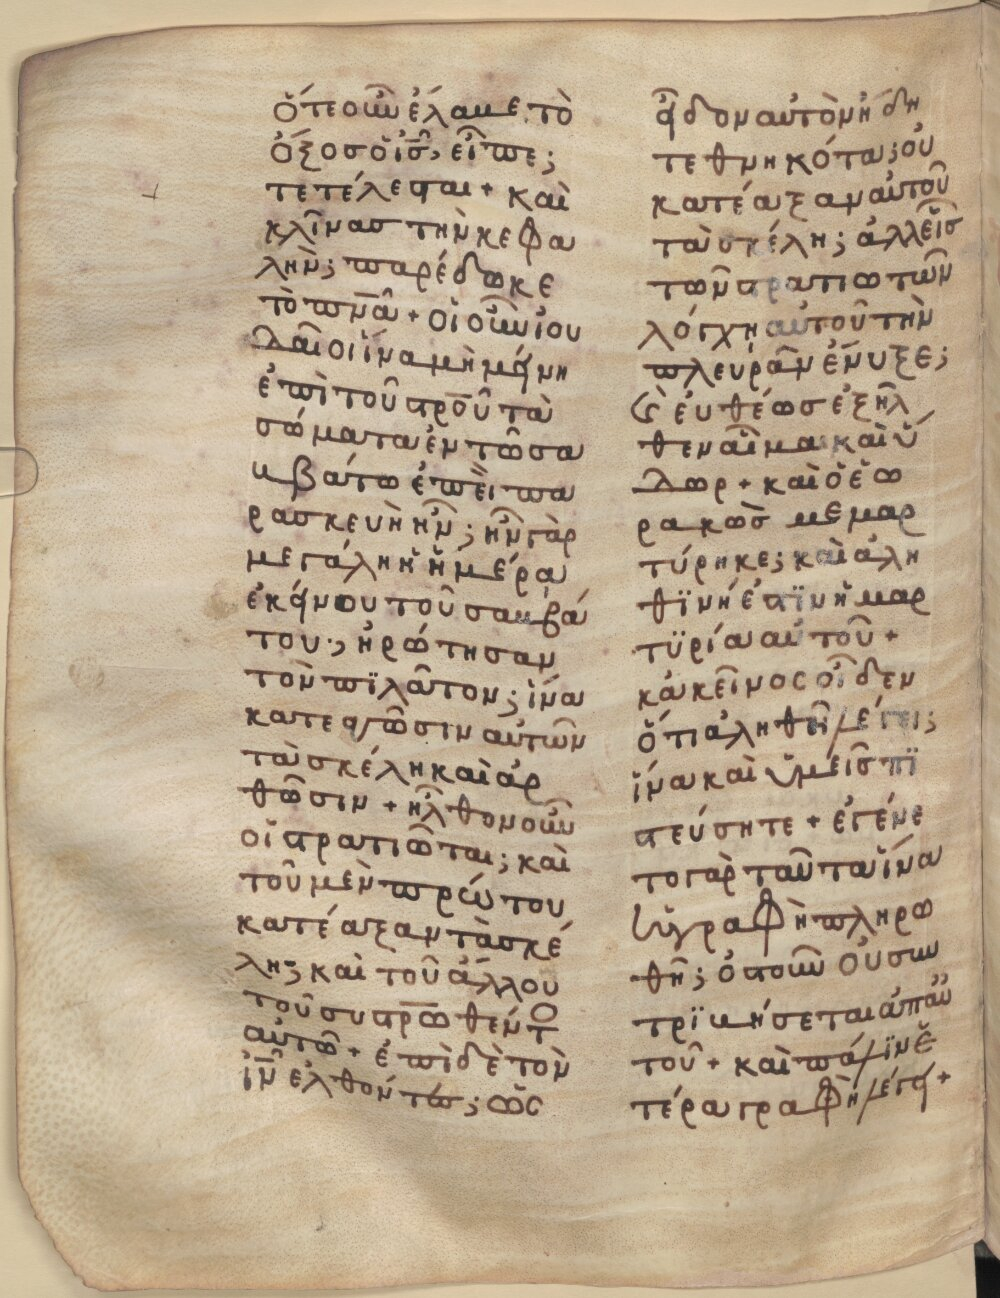 ὅτε οὖν ἔλαβε τὸ
ὄξος ὁ ις, εἶπε;
τετέλεσται + καὶ
κλῖνας τὴν κεφα
λὴν; παρέδωκε
τὸ πνα + οἱ οὖν ἰου
δαῖοι ἵνα μὴ μείνη
ἐπὶ τοῦ στρου τὰ
σώματα ἐν τῶ σα
ββάτω ἐπεὶ πα
ρασκευὴ ἦν; ἦν γὰρ
μεγάλη ἡ ἡμέρα
ἐκείνου τοῦ σαββά
του·, ἠρώτησαν
τὸν πϊλᾶτον; ἵνα
κατεαγῶσιν αὐτῶν
τὰ σκέλη καὶ ἀρ
θῶσιν + ἦλθον οὖν
οἱ στρατιῶται; καὶ
τοῦ μὲν πρώτου
κατέαξαν τὰ σκέ
λη; καὶ τοῦ ἄλλου
τοῦ συστρωθέντο
αὐτῶ + ἐπὶ δὲ τὸν
ιν ἐλθόντες; ὡς
εἶδον αὐτὸν ἤδη
τεθνηκότα; οὐ
κατέαξαν αὐτοῦ
τὰ σκέλη; ἀλλ εἷς
τῶν στρατιωτῶν
λόγχη αὐτοῦ τὴν
πλευρὰν ἔνυξε;
καὶ ἐυθέως ἐξῆλ
θεν αἷμα καὶ ὕ
δωρ + καὶ ὁ ἑω
ρακὼς μεμαρ
τύρηκε; καὶ ἀλη
θϊνή ἐστϊν ἡ μαρ
τϋρία αὐτοῦ +
κἀκεῖνος οἶδεν
ὅτι ἀληθῆ λέγει;
ἵνα καὶ ὑμεῖς πϊ
στεύσητε + ἐγένε
το γὰρ ταῦτα ἵνα
ἡ γραφὴ πληρω
θῆ; ὀστοῦν οὐ συν
τρϊβήσεται ἀπ αὐ
τοῦ + καὶ πάλϊν ἑ
τέρα γραφὴ λέγει +